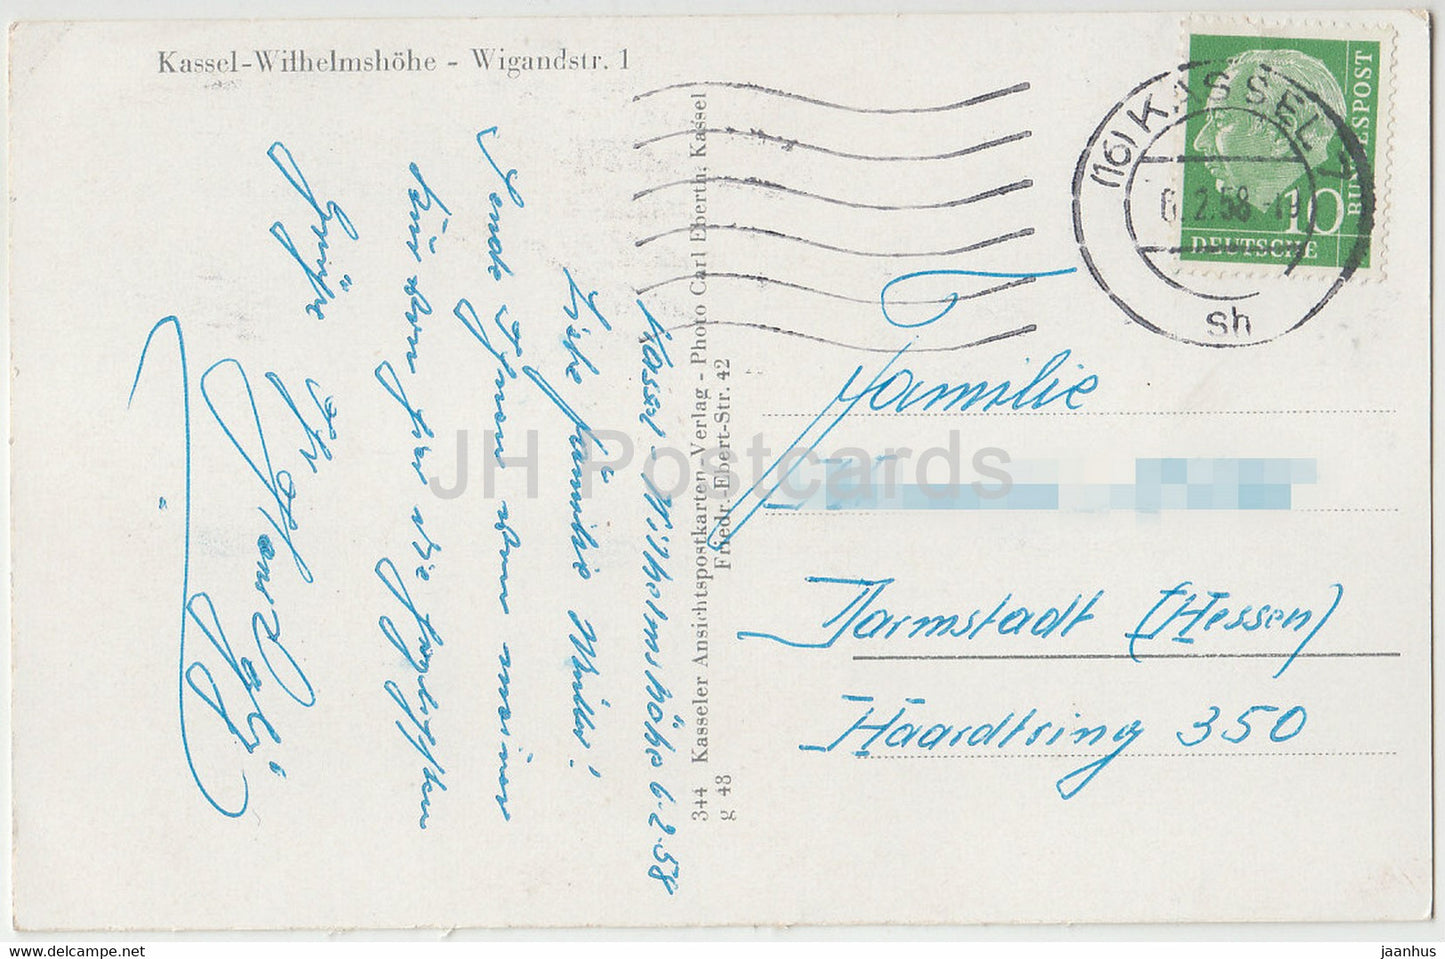 Kassel-Wilhelmshöhe - Wigandstr. 1
Kassel-Wilhelmshöhe 6.2.58
Liebe Familie Müller!
Sende Ihnen von meiner
Kur von hier die herzlichsten
Grüße Ihr
344 Kasseler Ansichtspostkarten-Verlag - Photo Carl Eberth, Kassel
g 48 Friedr.-Ebert-Str. 42
(16) KASSEL 7
6.2.58-19
sh
10
DEUTSCHE
BUNDESPOST
Familie
Darmstadt (Hessen)
Haardtring 350
JH Postcards
jaanhus